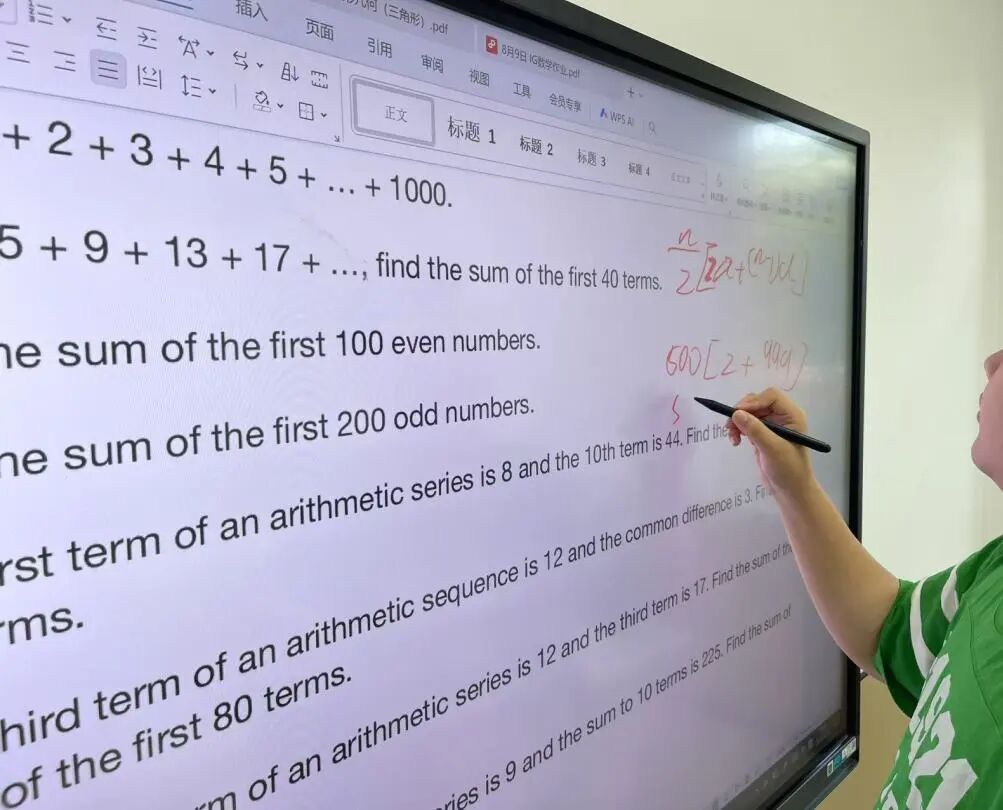 (三角形).pdf
8月9日 IG数学作业.pdf
插入 页面 引用 审阅 视图 工具 会员专享 WPS AI
正文 标题 1 标题 2 标题 3 标题 4
+ 2 + 3 + 4 + 5 + ... + 1000.
5 + 9 + 13 + 17 + ..., find the sum of the first 40 terms.
n/2[2a+(n-1)d]
he sum of the first 100 even numbers.
500[2+999]
he sum of the first 200 odd numbers.
5
rst term of an arithmetic series is 8 and the 10th term is 44. Find the
rms.
hird term of an arithmetic sequence is 12 and the common difference is 3. Fi
of the first 80 terms.
rm of an arithmetic series is 12 and the third term is 17. Find the sum of the
ries is 9 and the sum to 10 terms is 225. Find the sum of